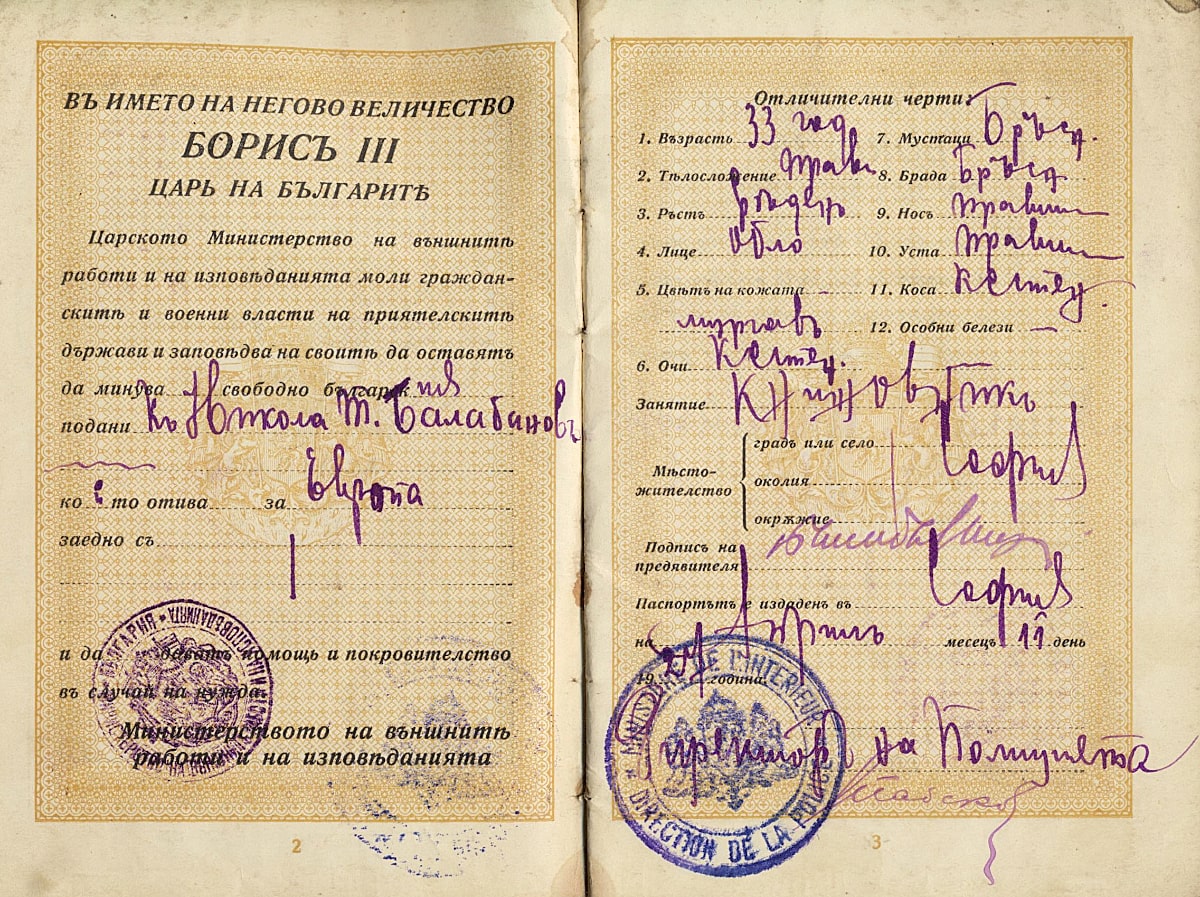 ВЪ ИМЕТО НА НЕГОВО ВЕЛИЧЕСТВО
БОРИСЪ III
ЦАРЬ НА БЪЛГАРИТѢ
Царското Министерство на външнитѣ
работи и на изповѣданията моли граждан-
скитѣ и военни власти на приятелскитѣ
държави и заповѣдва на своитѣ да оставятъ
да минува свободно българския
подани къ Никола Т. Балабановъ
който отива за Европа
заедно съ
и да помощь и покровителство
въ случай на нужда.
Министерството на външнитѣ
работи и на изповѣданията
2
Отличителни черти:
1. Възрасть 33 год
2. Тѣлосложение прави
3. Ръстъ срѣденъ
4. Лице обло
5. Цвѣтъ на кожата
мургавъ
6. Очи Кестен.
7. Мустаци Бръсн.
8. Брада Бръсн
9. Носъ правилн
10. Уста правилн
11. Коса Кестен.
12. Особни белези —
Занятие
Мѣсто-
жителство
градъ или село София
околия
окрѫжие
Подпис на
предявителя
Паспортътъ е издаденъ въ София
на Априлъ месецъ 11 день
19 27 година.
на Полицията
MINISTÈRE DE L'INTERIEUR
DIRECTION DE LA POLICE
3